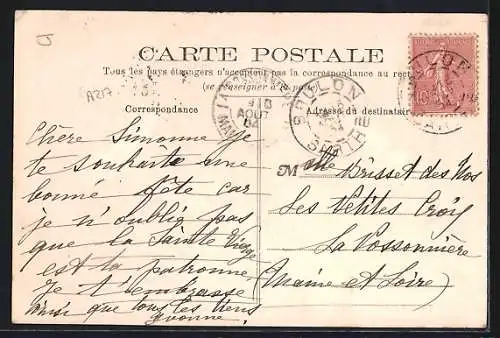 CARTE POSTALE
Tous les pays étrangers n'acceptent pas la correspondance au recto
(se renseigner à la poste)
A217
Correspondance
Adresse du destinataire
BRULON
SARTHE
AOUT
Chère Simonne je
te souhaite une
bonne fête car
je n'oublie pas
que la Sainte Vierge
est ta patronne
Je t'embrasse
ainsi que tous les tiens
Yvonne
Mlle Brisset des Nos
Les Petites Croix
La Possonnière
(Maine et Loire)